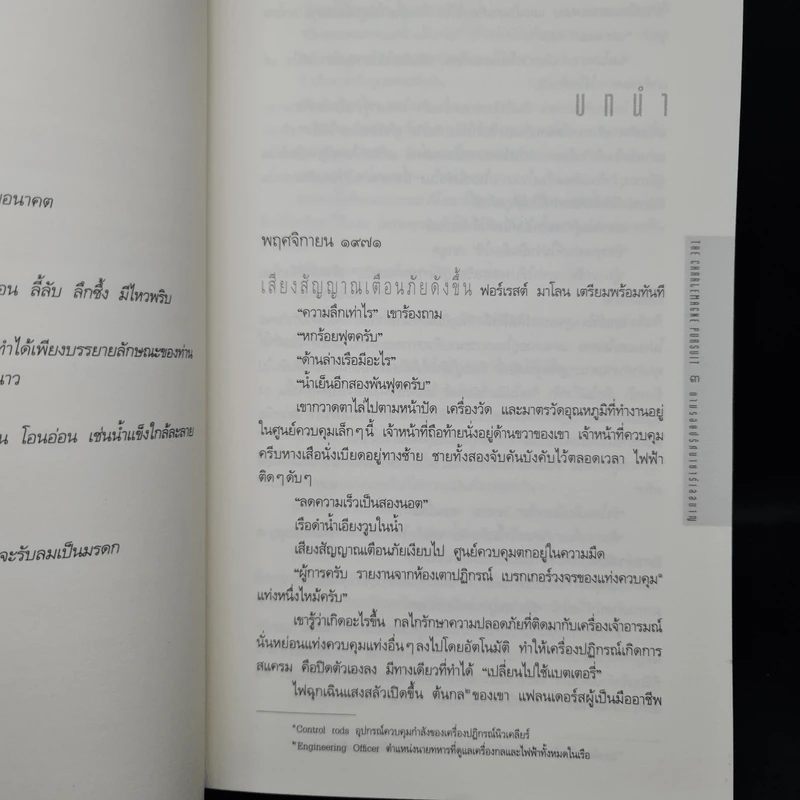 อนาคต
ลี้ลับ ลึกซึ้ง มีไหวพริบ
ทำได้เพียงบรรยายลักษณะของท่าน
โอนอ่อน เช่นน้ำแข็งใกล้ละลาย
จะรับลมเป็นมรดก
บทนำ
พฤศจิกายน ๑๙๗๑
เสียงสัญญาณเตือนภัยดังขึ้น ฟอร์เรสต์ มาโลน เตรียมพร้อมทันที
“ความลึกเท่าไร” เขาร้องถาม
“หกร้อยฟุตครับ”
“ด้านล่างเรือมีอะไร”
“น้ำเย็นอีกสองพันฟุตครับ”
เขากวาดตาไล่ไปตามหน้าปัด เครื่องวัด และมาตรวัดอุณหภูมิที่ทำงานอยู่
ในศูนย์ควบคุมเล็กๆ นี้ เจ้าหน้าที่ถือท้ายนั่งอยู่ด้านขวาของเขา เจ้าหน้าที่ควบคุม
ครีบหางเสือนั่งเบียดอยู่ทางซ้าย ชายทั้งสองจับคันบังคับไว้ตลอดเวลา ไฟฟ้า
ติดๆ ดับๆ
“ลดความเร็วเป็นสองนอต”
เรือดำน้ำเอียงวูบในน้ำ
เสียงสัญญาณเตือนภัยเงียบไป ศูนย์ควบคุมตกอยู่ในความมืด
“ผู้การครับ รายงานจากห้องเตาปฏิกรณ์ เบรกเกอร์วงจรของแท่งควบคุม*
แท่งหนึ่งไหม้ครับ”
เขารู้ว่าเกิดอะไรขึ้น กลไกรักษาความปลอดภัยที่ติดมากับเครื่องเจ้าอารมณ์
นั่นหย่อนแท่งควบคุมแท่งอื่นๆ ลงไปโดยอัตโนมัติ ทำให้เครื่องปฏิกรณ์เกิดการ
สแครม คือปิดตัวเองลง มีทางเดียวที่ทำได้ “เปลี่ยนไปใช้แบตเตอรี่”
ไฟฉุกเฉินแสงสลัวเปิดขึ้น ต้นกล**ของเขา แฟลนเดอร์สผู้เป็นมืออาชีพ
*Control rods อุปกรณ์ควบคุมกำลังของเครื่องปฏิกรณ์นิวเคลียร์
**Engineering Officer ตำแหน่งนายทหารที่ดูแลเครื่องกลและไฟฟ้าทั้งหมดในเรือ
THE CHARLEMAGNE PURSUIT ๓ ตามรอยปริศนาชาร์เลอมาญ